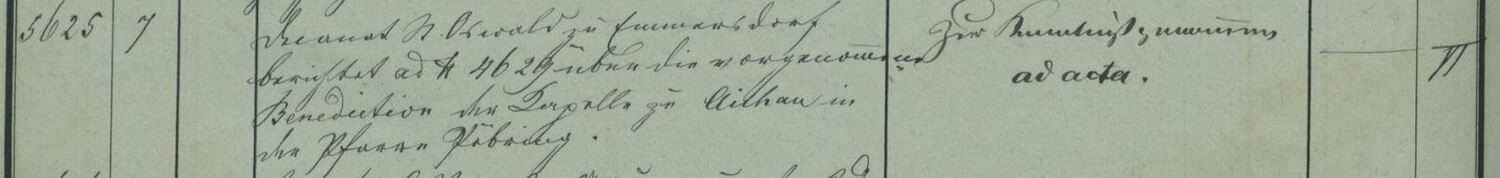 5625 7 Decanat St. Oswald zu Emmersdorf
berichtet ad N 4629 über die vorgenommene
Benediction der Kapelle zu Aichau in
der Pfarre Pöbring.
Zur Kenntniß genommen
ad acta.